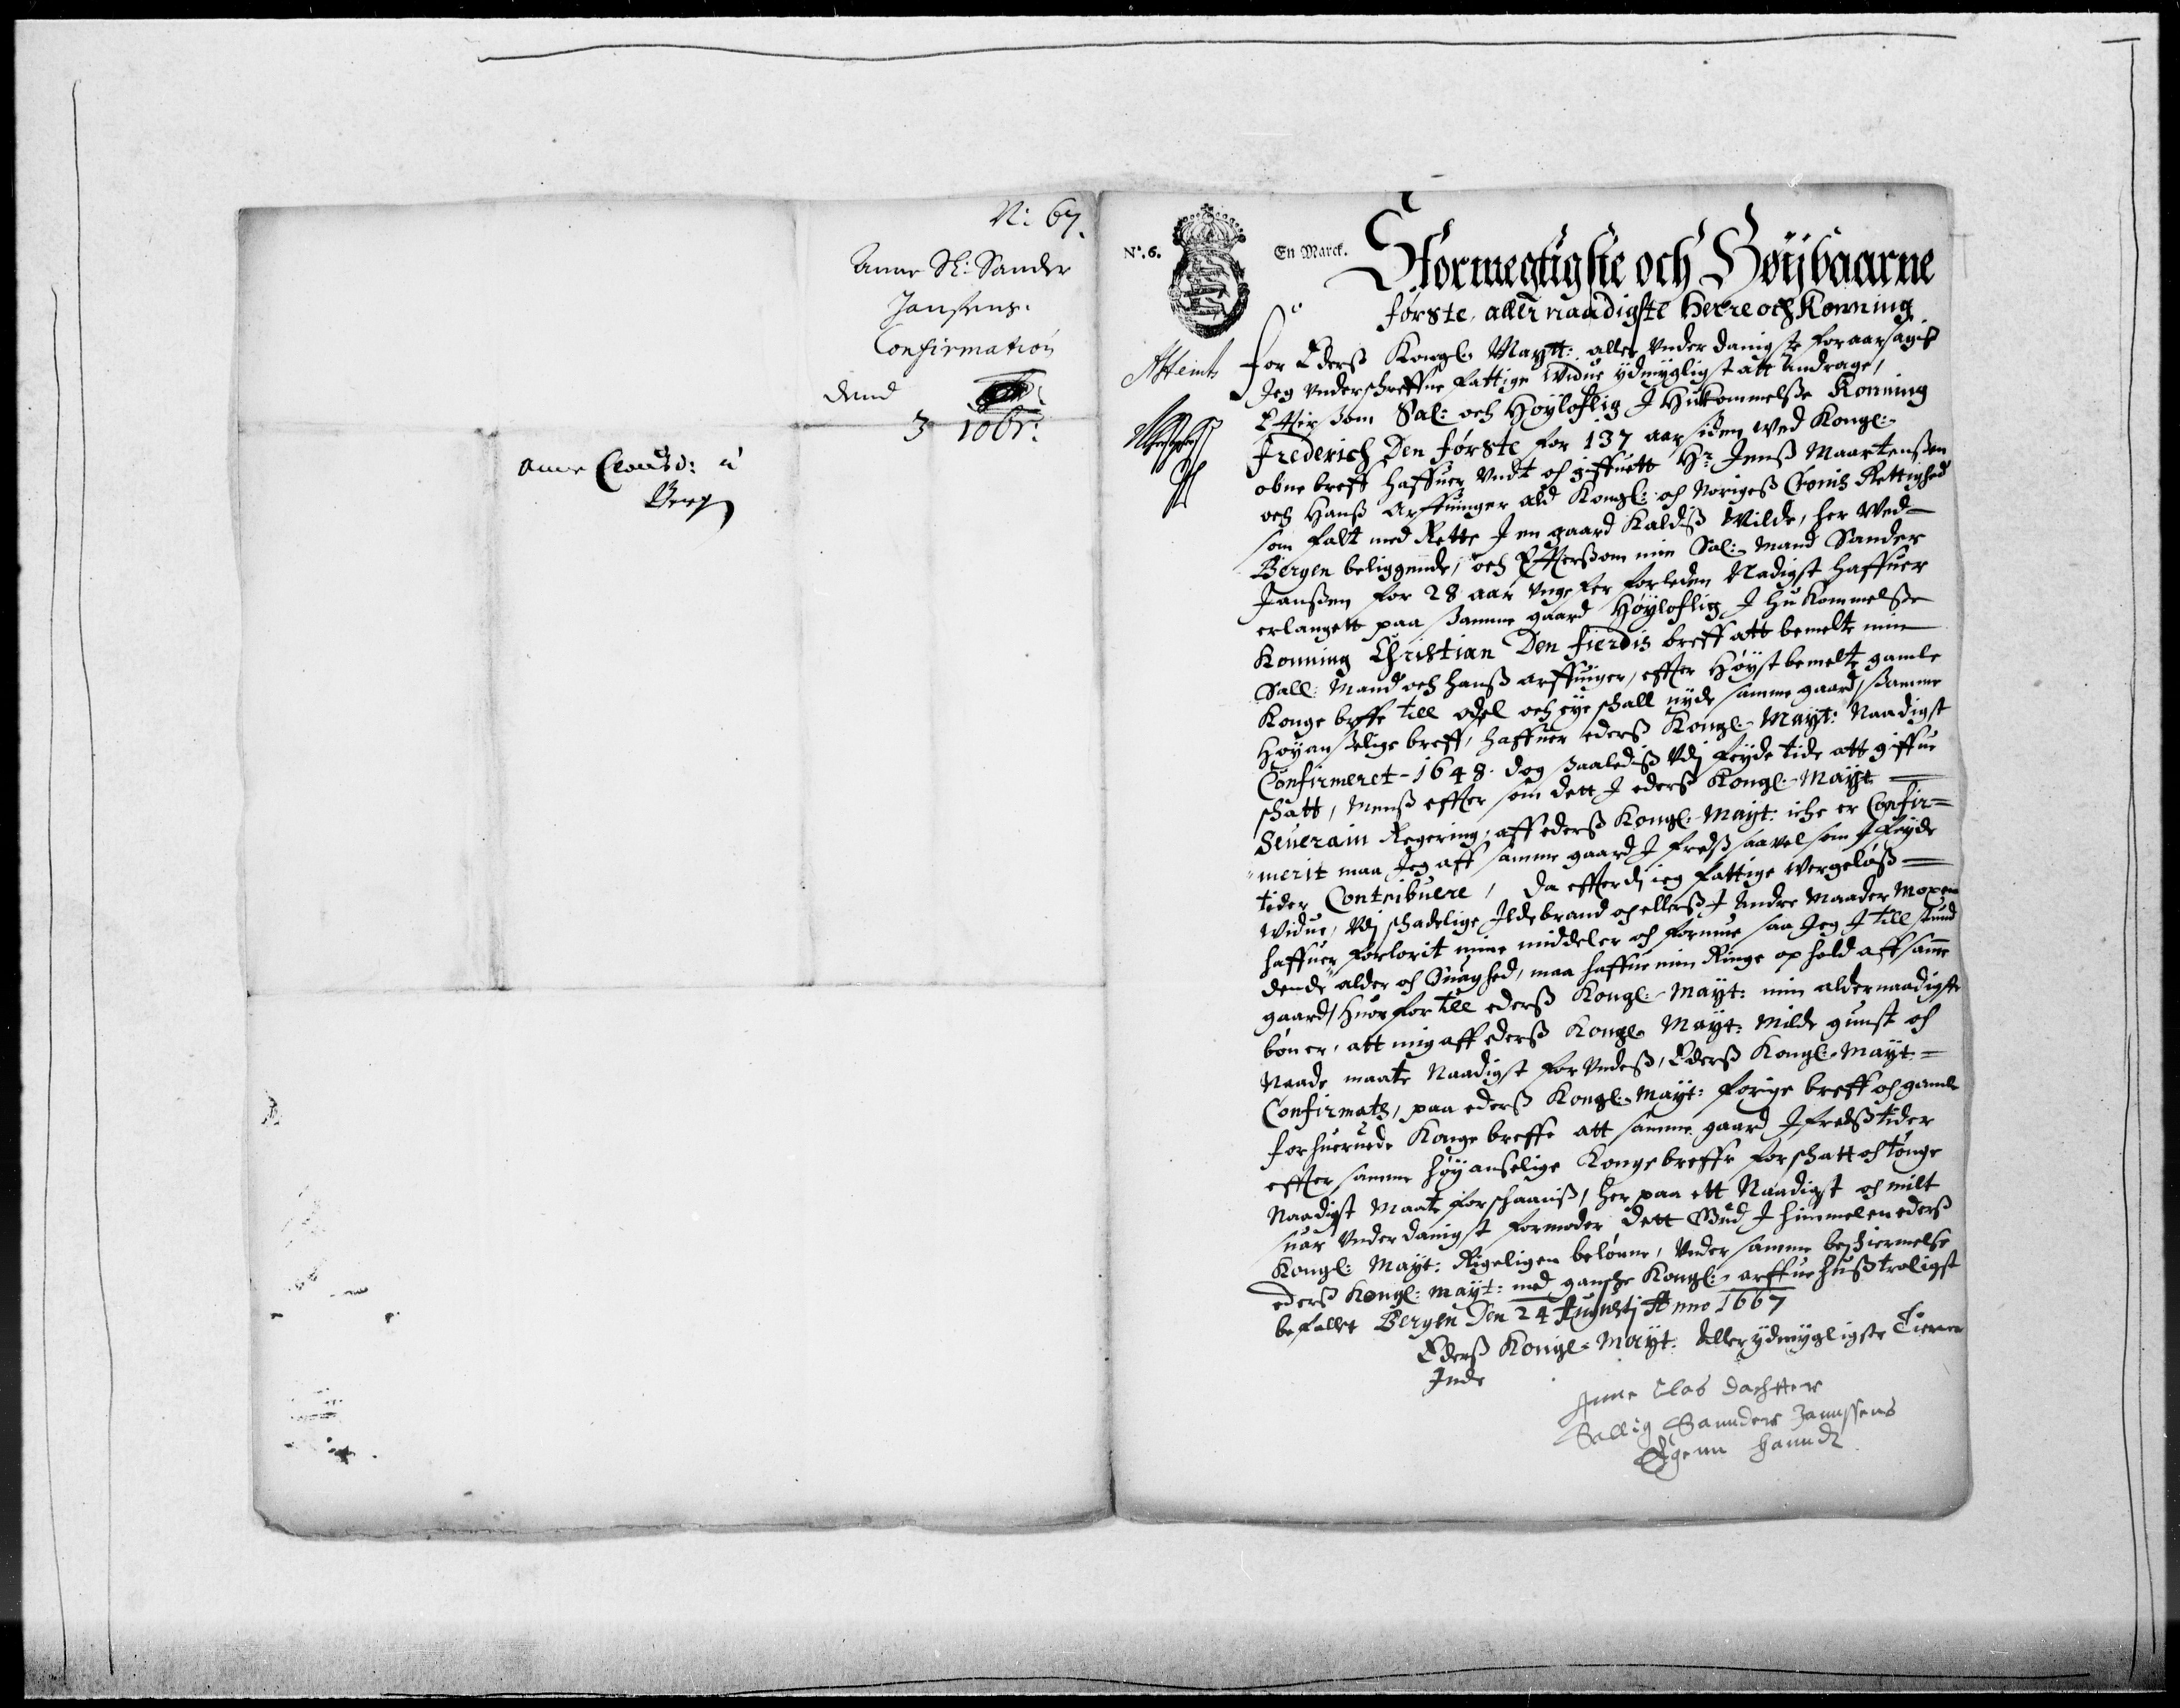 N: 67.
Anne Sl: Sander
Janssens
Confirmation
dend
3 10br:
Anne Clausd: i
Berg
No. 6.
En Marck.
Stormegtigste och Høijbaarne
første, aller naadigste Herre och Konning
For Ederß Kongl: Maytt: aller vnder danigste foraarsagis
Jeg vnderschreffne fattige Widue ydmygligst att Andrage,
Effter som Sal: och Høyloflig J Hukommelsse Konning
Frederich Den første for 137 aar siden wed Kongl:
obne breff haffuer vndt och giffuett Hr Jenß Maartensen
och Hanß Arffuinger ald Kongl: och Norigeß Croniß Rettighed
som falt med Rette J en gaard kaldiß Wilde, her wed
Bergen beliggende, och Effterssom min Sal: Mand Sander
Janßen for 28 aar vngefer forleden Nadigst haffuer
erlangett paa samme gaard Høyloflig J Hukommelsse
Konning Christian Den fierdis breff att bemelte min
Sall: Mand och hanß arffuinger, effter Høystbemelte gamle
Konge breffe till odel och eye schall nyde samme gaard, samme
Høyanselige breff, haffuer ederß Kongl: Mayt: Naadigst
Confirmeret 1648. dog saaledeß vdj feyde tide att giffue
schatt, menß effter som dett J ederß Kongl: Mayt
Seuerain Regering, aff ederß Kongl: Mayt: iche er Confir=
merit maa Jeg aff samme gaard J fredß saauel som J feyde
tider Contribuere, Da effterdj ieg fattige wergeløß
widue, vdj schadelige Jldebrand och ellerß J Andre Maader
haffuer forlorit mine middeler och formue saa Jeg J till stund
dende alder och Suaghed, maa haffue min Ringe ophold aff samme
gaard, huorfor till ederß Kongl: Mayt: min aldernaadigste
bøn er, att mig aff ederß Kongl: Mayt: Milde gunst och
Naade maate Naadigst forvndeß, Ederß Kongl: Mayt:
Confirmats, paa ederß Kongl: Mayt: forige breff och gamle
forhueruede Konge breffe att samme gaard J fredß tider
effter samme høyanselige Konge breffe for schatt och tønge
Naadigst Maate forschaaniß, her paa ett Naadigst och milt
suar vnder danigst formoder Dett Gud J himmelen ederß
Kongl: Mayt: Rigeligen beløne, vnder samme beschiermelse
ederß Kongl: Mayt: med gandsche Kongl: arffue huß troligst
befallet Bergen Den 24 Augustj Anno 1667
Ederß Kongl: Mayt: Aller ydmygligste Tiener
Jnde
Anne Clas dachtter
Sallig Saunders Jannssens
Egenn Haandt